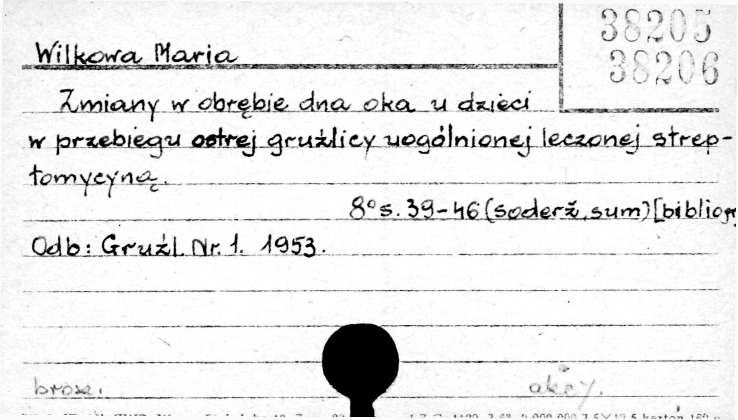 38205
38206
Wilkowa Maria
Zmiany w obrębie dna oka u dzieci
w przebiegu ostrej gruźlicy uogólnionej leczonej strep-
tomycyną.
8° s. 39-46 (soderž, sum) [bibliogr
Odb: Gruźl. Nr. 1. 1953.
brosz. akcy.